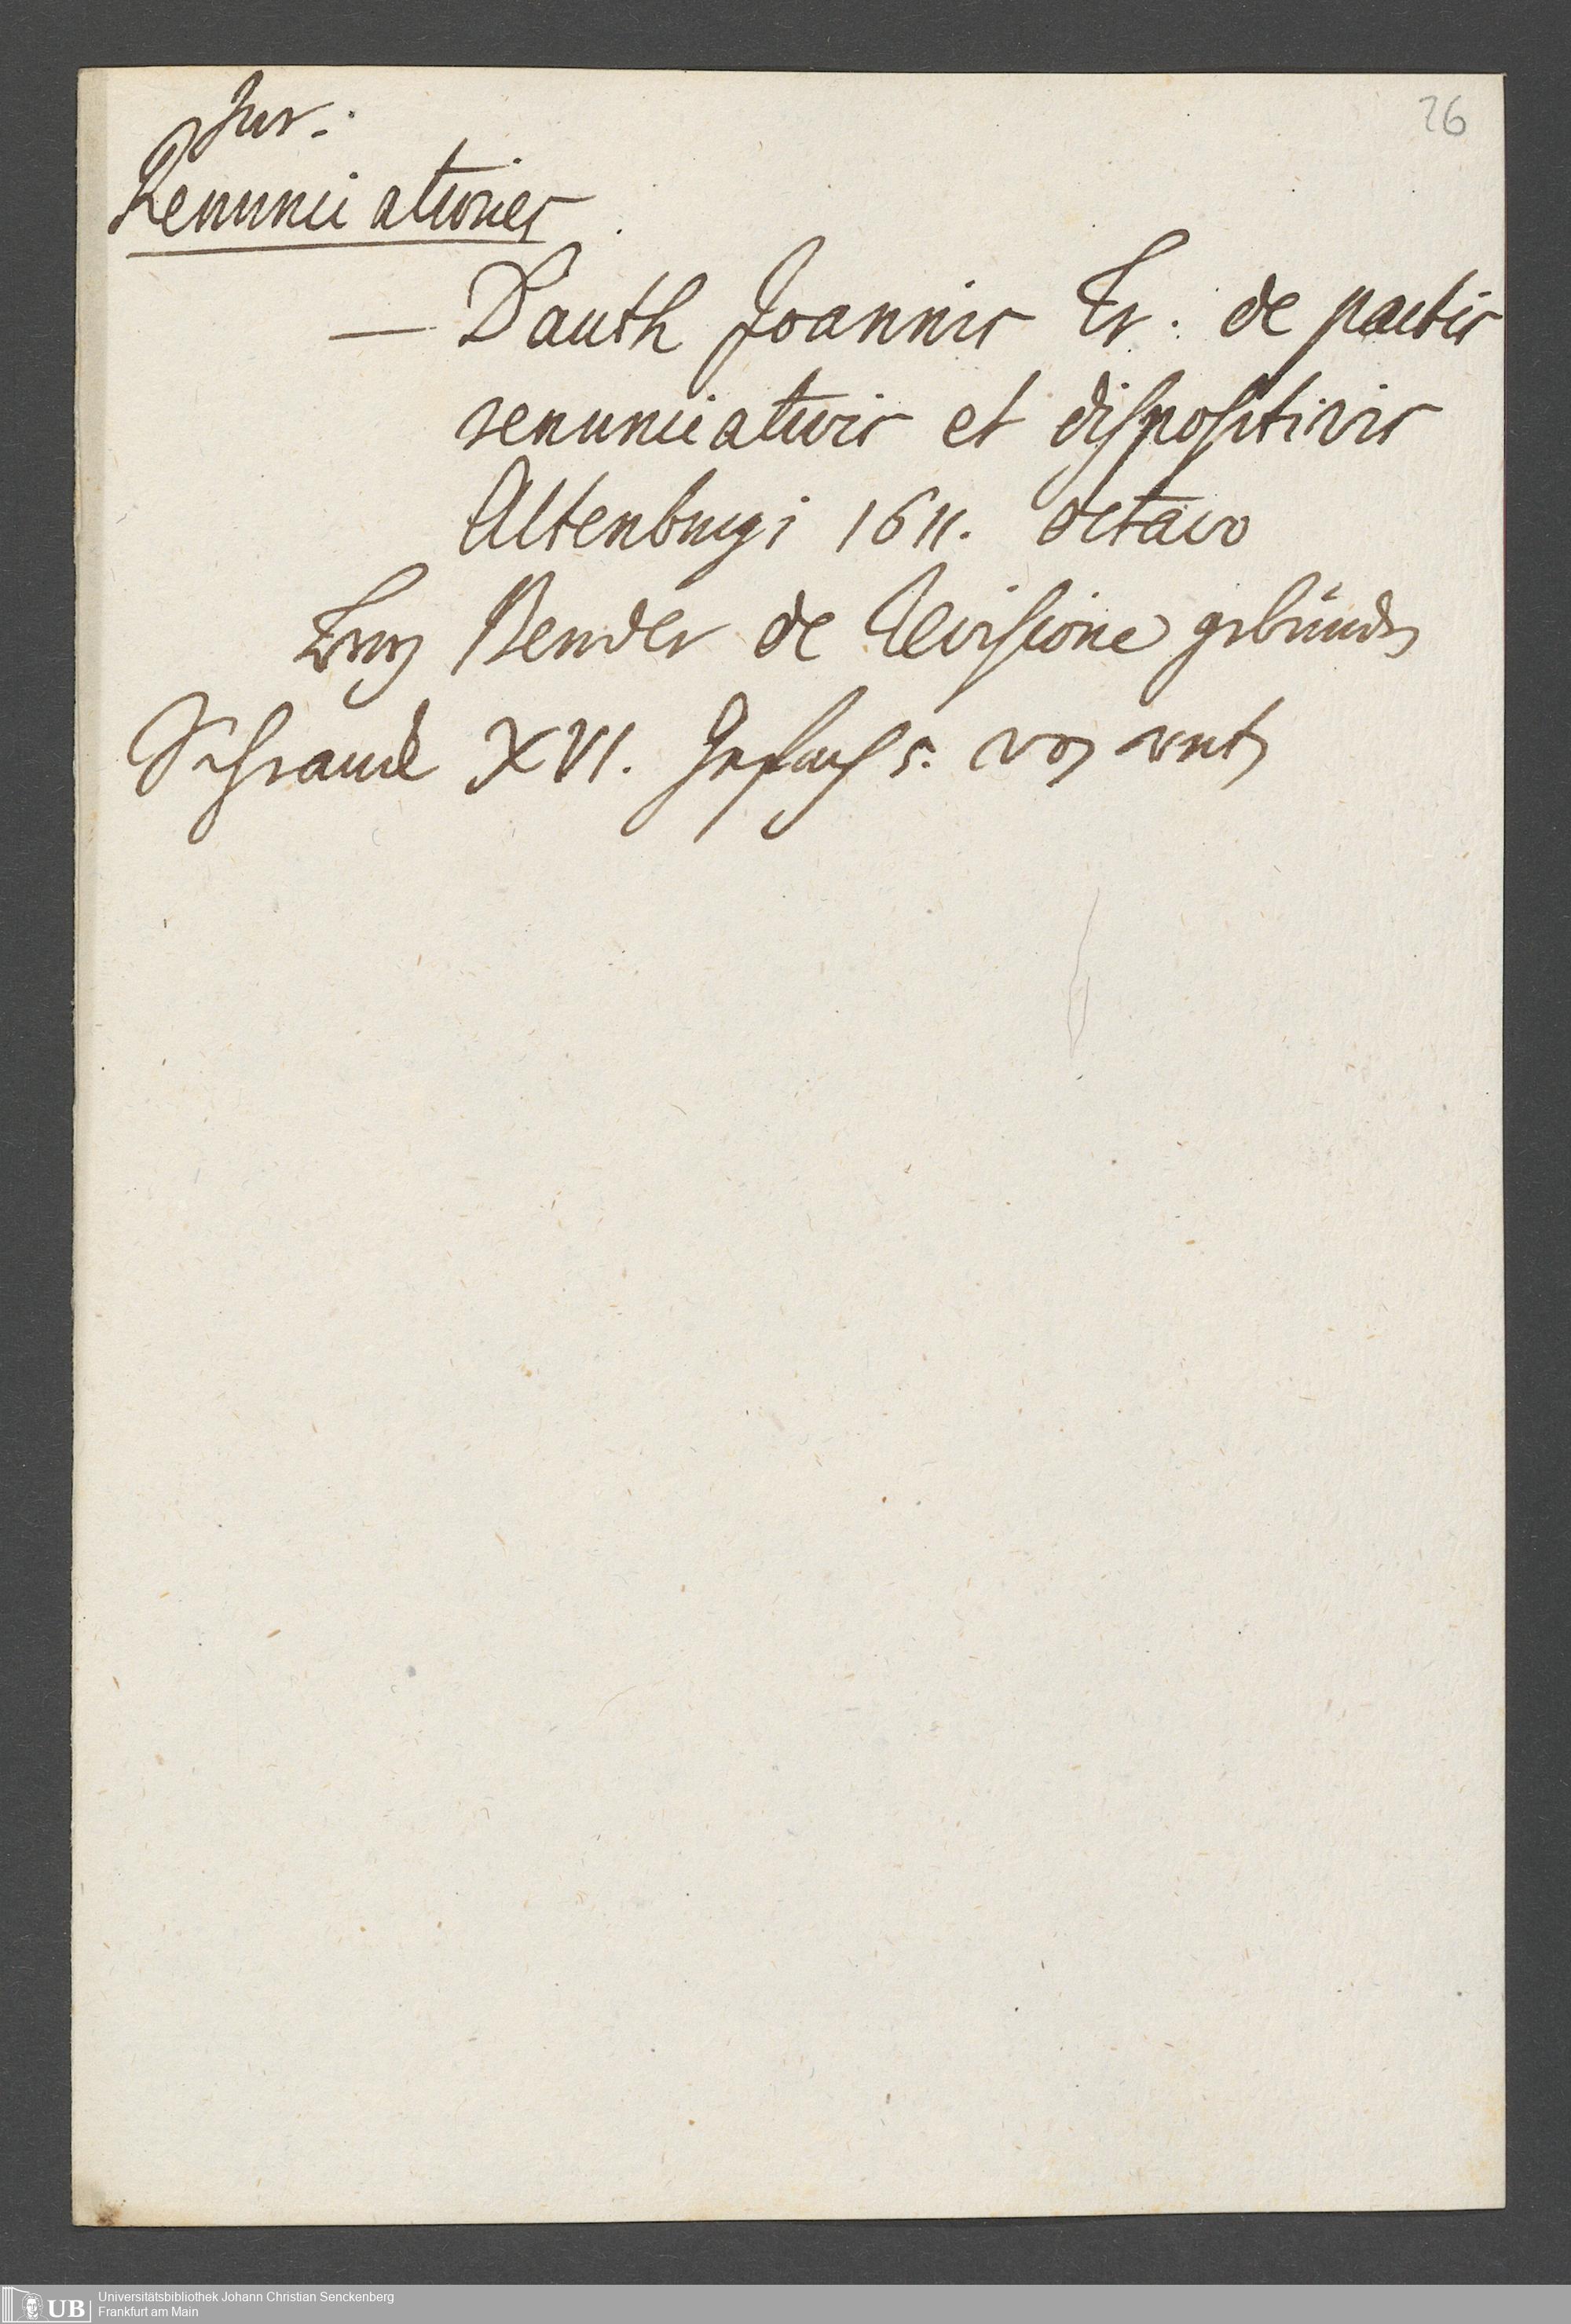 26
Jur.
Renunciationes
— Dauth Joannis Tr. de pactis
renunciativis et dispositivis
Altenburgi 1611. octavo
Bender de Revisione gebunden
Schrank XVI. Gefach 5. von unten
UB Universitätsbibliothek Johann Christian Senckenberg
Frankfurt am Main